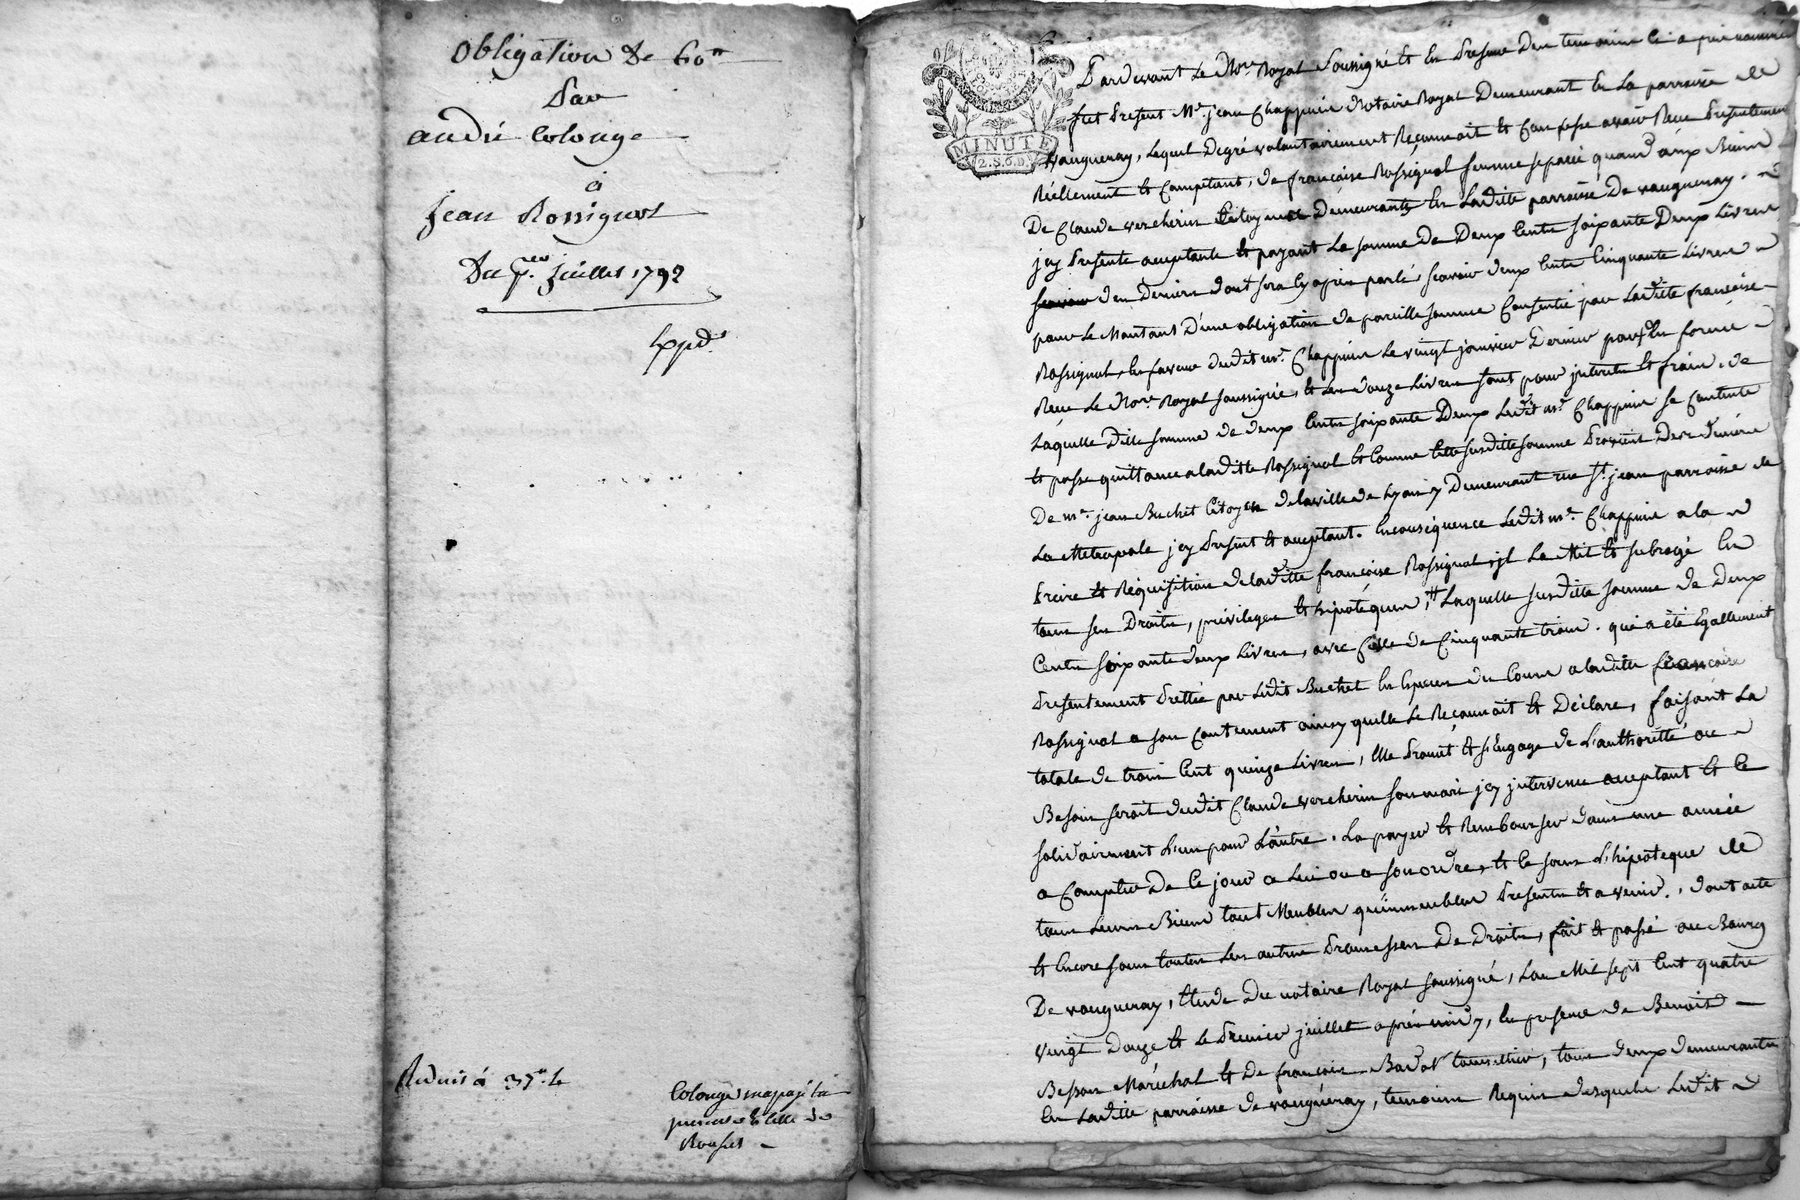 Obligation de 60ᵗᵗ
Par
andré Colonge
a
Jean Rossignol
Du 1.er Juillet 1792
Expd.
Reduit á 37ᵗᵗ 4
Colonge m'a payé ta
MINUTE
2.S.6.D.
Pardevant Le No.re Royal Soussigné Et En Presence des temoins Ci apres nommés
fut Present M.e jean Chappuis Notaire Royal Demeurant En La parroisse de
Vaugneray, Lequel Degré volontairement Reconnoit Et Confesse avoir Reçu Presentement
Réellement Et Comptant, de françoise Rossignol femme separée quand aux Biens
De Claude vercherin Citoyens Demeurants En Laditte parroisse De vaugneray.
jcy Presente acceptante Et payant La somme De Deux Cents soixante Deux Livres
des Deniers dont sera Cy apres parlé scavoir deux Cents Cinquante Livres
pour Le Montant D'une obligation de pareille somme Consentie par Laditte françoise
Rossignol, En faveur dudit m.e Chappuis Le vingt janvier Dernier pardevant En forme
Reçu Le No.re Royal soussigné, Et Les douze Livres sont pour interets Et frais, de
Laquelle Ditte somme de deux Cents soixante Deux Ledit m.e Chappuis se Contente
Et passe quittance a laditte Rossignol Et Comme Cette susditte somme Provient Des deniers
De m.e jean Buchet Citoyen delaville de Lyon y Demeurant rue St. jean parroisse de
La Metropole jcy Present Et acceptant. En consequence Ledit m.e Chappuis a la
Priere Et Requisition de laditte françoise Rossignol, il Le Met Et subroge En
tous ses Droits, privileges Et hipoteques, # Laquelle susditte somme de Deux
Cents soixante deux Livres, avec Celle de Cinquante trois. qui a été Egallement
Presentement Prettée par Ledit Buchet En Especes du Cours a laditte françoise
Rossignol a son Contentement ainsy quelle Le Reconnoit Et Déclare, faisant La
totale de trois Cent quinze Livres, Elle Promet Et s'Engage de L'authorité ou
Besoin seroit dudit Claude vercherin son mari jcy intervenu acceptant Et Ce
solidairement L'un pour L'autre. La payer Et Rembourser dans une année
a Compter De Ce jour a Lui ou a son ordre, Et Ce sous L'hipoteque de
tous Leurs Biens tant Meubles qu'immeubles Presents Et a venir. dont acte
Et Encore sous toutes Les autres Promesses De Droits, fait Et passé au Bourg
De vaugneray, Etude Du notaire Royal soussigné, L'an Mil sept Cent quatre
vingt Douze Et Le Premier juillet apres midy, En presence de Benoit
Besson Maréchal Et De françois Badot tonnellier, tous deux demeurants
En Laditte parroisse de vaugneray, temoins Requis Lesquels Ledit